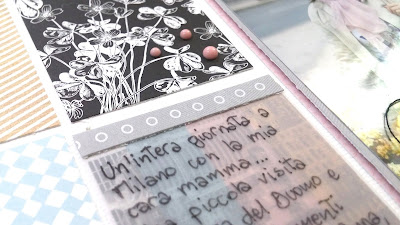 Un'intera giornata a
Milano con la mia
cara mamma...
piccola visita
del Duomo e